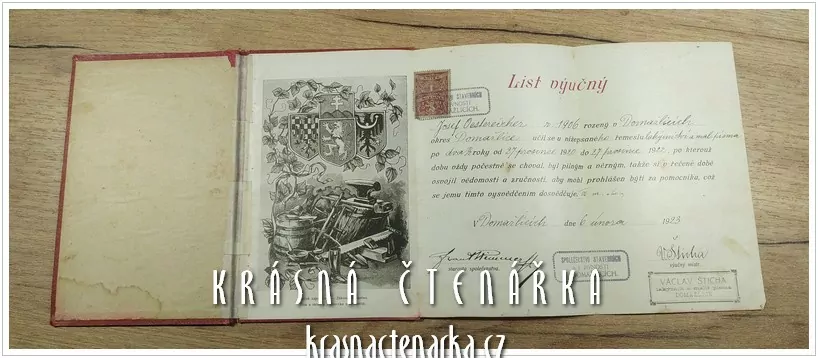 List výučný
Josef Oestereicher r. 1906 rozený v Domažlicích
okres Domažlice učil se u nížepsaného řemeslu
po dva ½ roky od 27 prosince 1920 do 27 prosince 1922, po kterouž
dobu vždy počestně se choval, byl pilným a věrným, také si v řečené době
osvojil vědomosti a zručnosti, aby mohl prohlášen býti za pomocníka, což
se jemu tímto vysvědčením dosvědčuje
v Domažlicích dne 6 února 1923
SPOLEČENSTVO STAVEBNÍCH
DOMAŽLICÍCH.
V. Šticha
starosta společenstva.
VÁCLAV ŠTICHA
DOMAŽLICE
KRÁSNÁ ČTENÁŘKA
krasnactenarka.cz